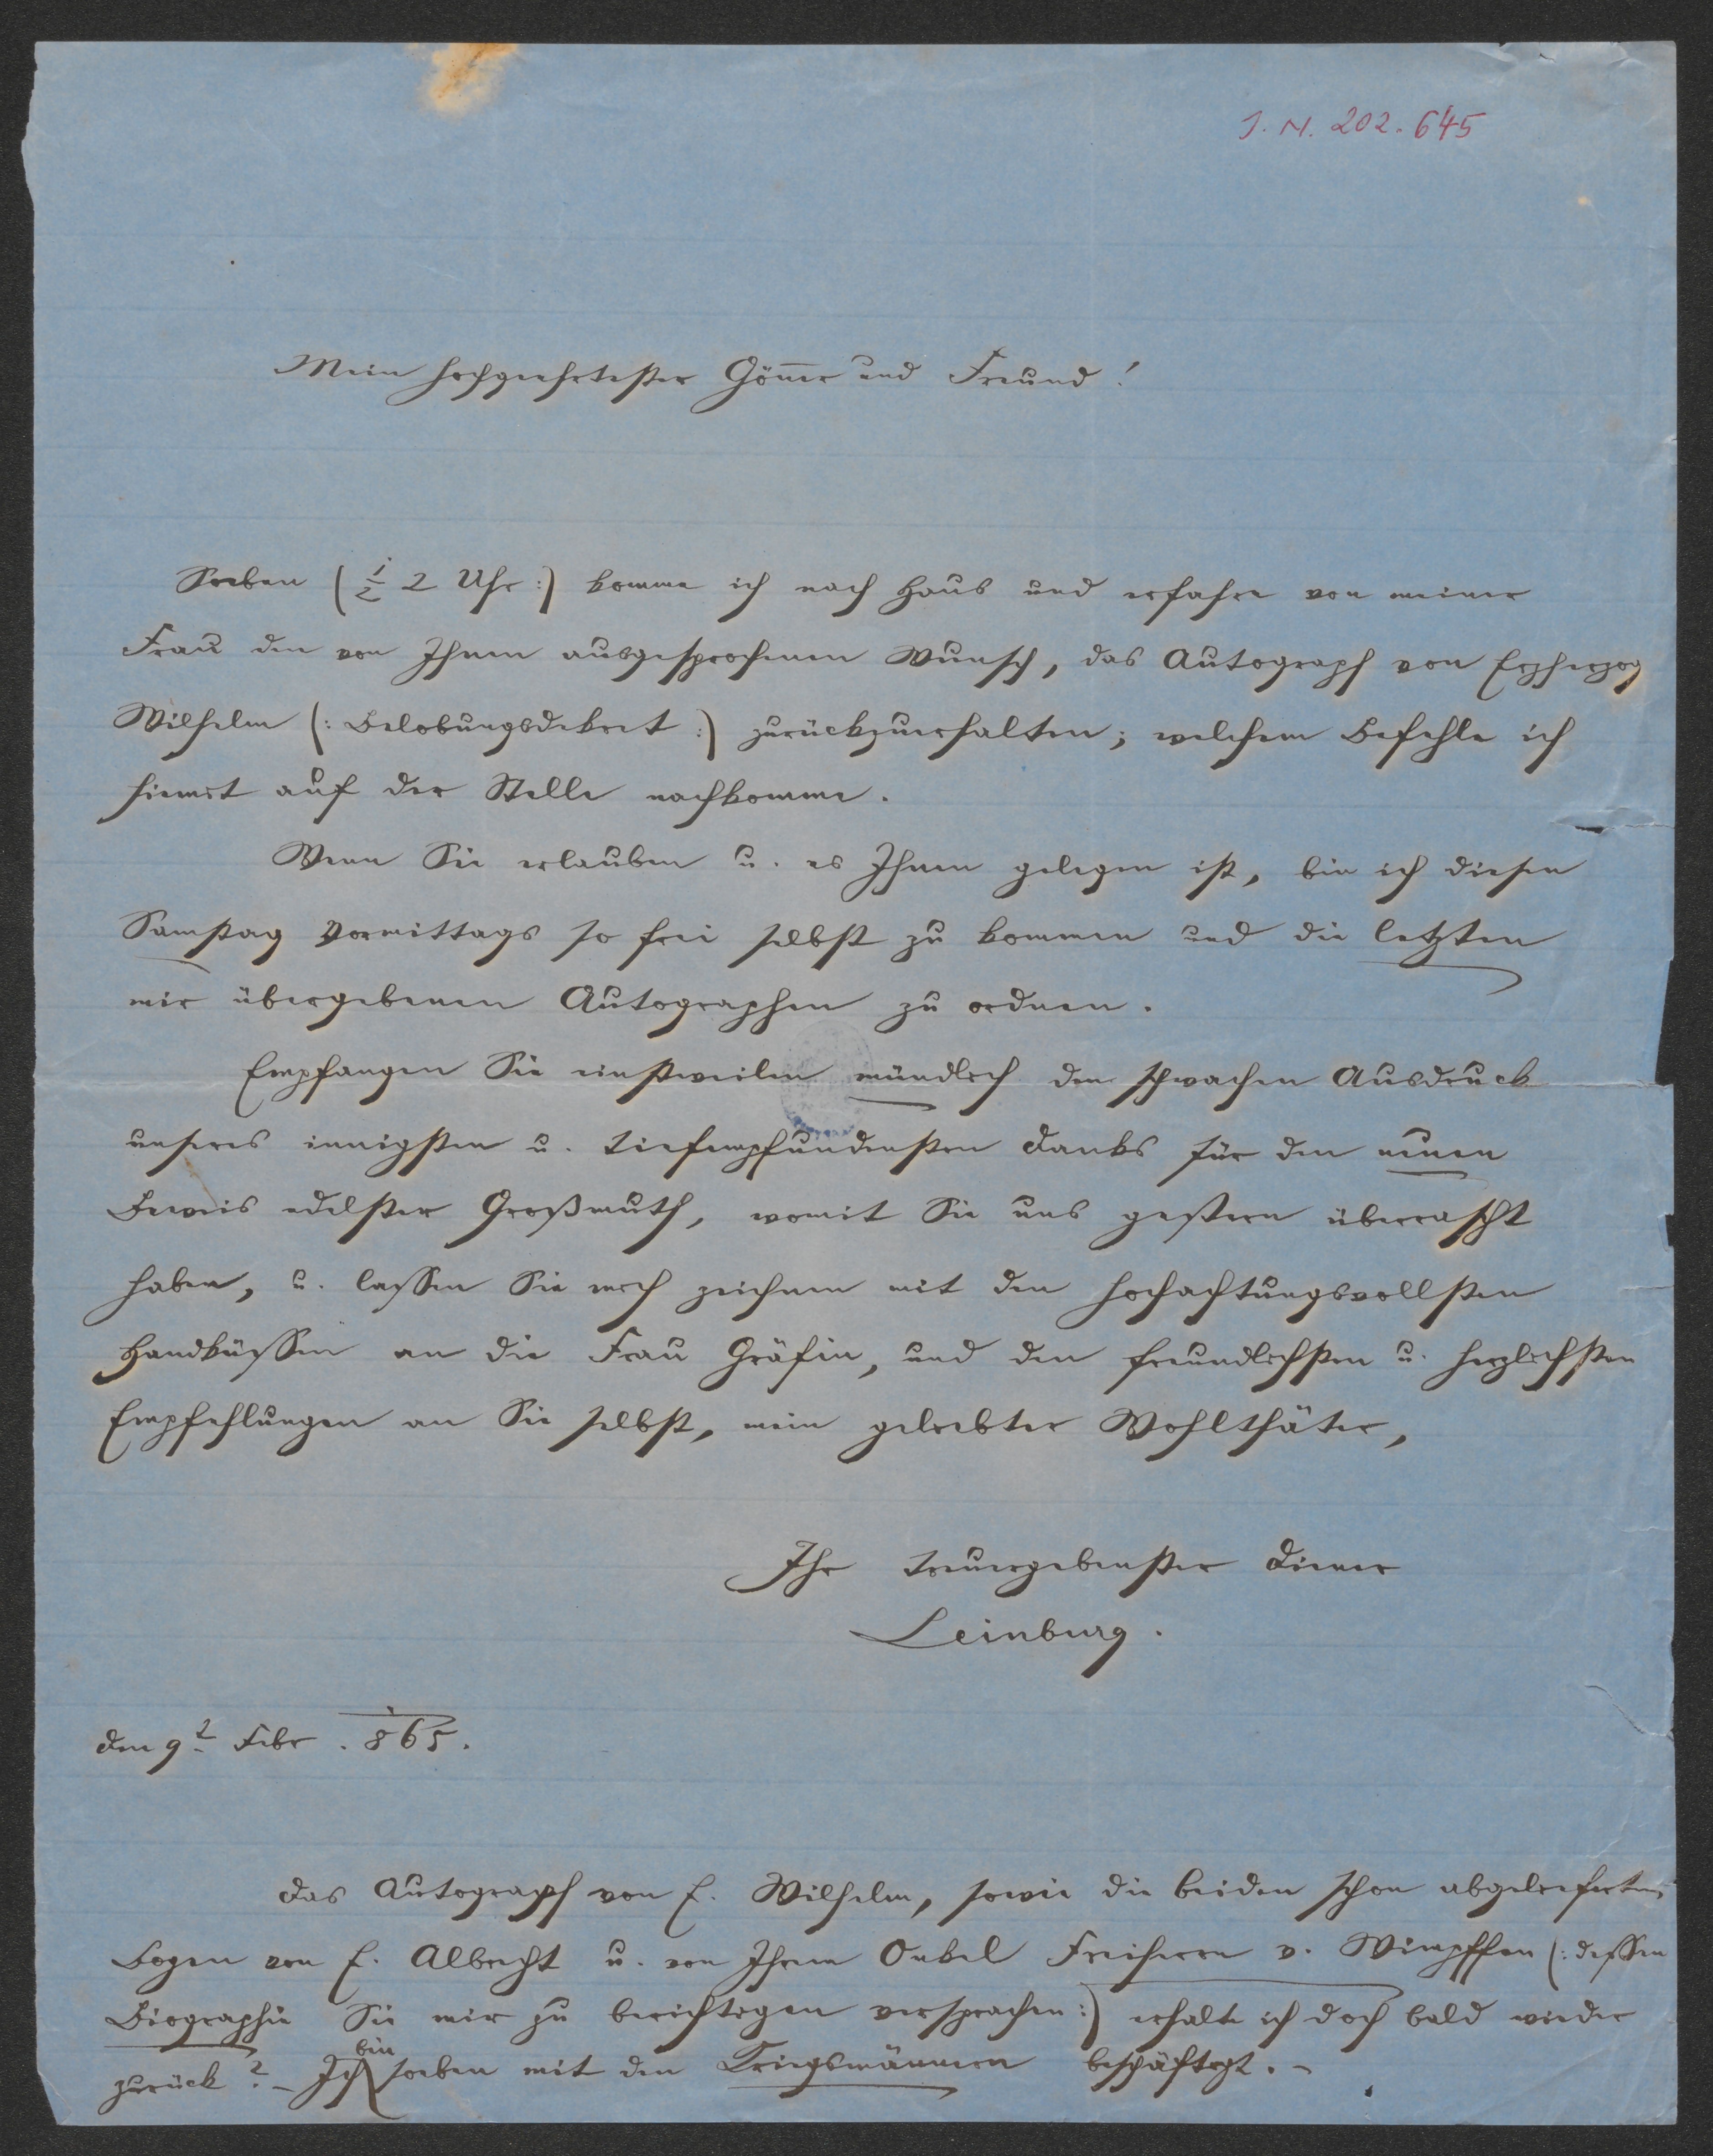 J. N. 202.645
Mein hochgeehrtester Göner und Freund!
Soeben (½ 2 Uhr:) komme ich nach Haus und erfahre von meiner
Frau den von Ihnen ausgesprochenen Wunsch, das Autograph von Erzherzog
Wilhelm (: Belobungsdekret :) zurückzuerhalten; welchem Befehle ich
hiemit auf der Stelle nachkomme.
Wenn Sie erlauben u. es Ihnen gelegen ist, bin ich diesen
Samstag Vormittags so frei selbst zu kommen und die letzten
mir übergebenen Autographen zu ordnen.
Empfangen Sie einstweilen mündlich den schwachen Ausdruck
unseres innigsten u. tiefempfundensten Danks für den neuen
Beweis edelster Großmuth, womit Sie uns gestern überrascht
haben, u. lassen Sie mich zeichnen mit den hochachtungsvollsten
Handküssen an die Frau Gräfin, und den freundlichsten u. herzlichsten
Empfehlungen an Sie selbst, mein geliebter Wohlthäter,
Ihr treuergebenster Diener
Leinburg.
den 9t Febr. 1865.
Das Autograph von E. Wilhelm, sowie die beiden schon abgelieferten
Bogen von E. Albrecht u. von Ihrem Onkel Freiherrn v. Wimpffen (: dessen
Biographie Sie mir zu berichtigen versprachen :) erhalte ich doch bald wieder
zurück? – Ich bin soeben mit den Kriegsmännern beschäftigt. –